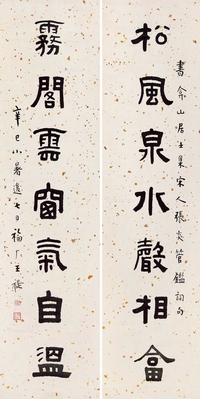 書佘山居士集宋人張炎管鑑詞句
松風泉水聲相畣
霧閣雲窗氣自溫
辛巳小暑後七日福厂王禔